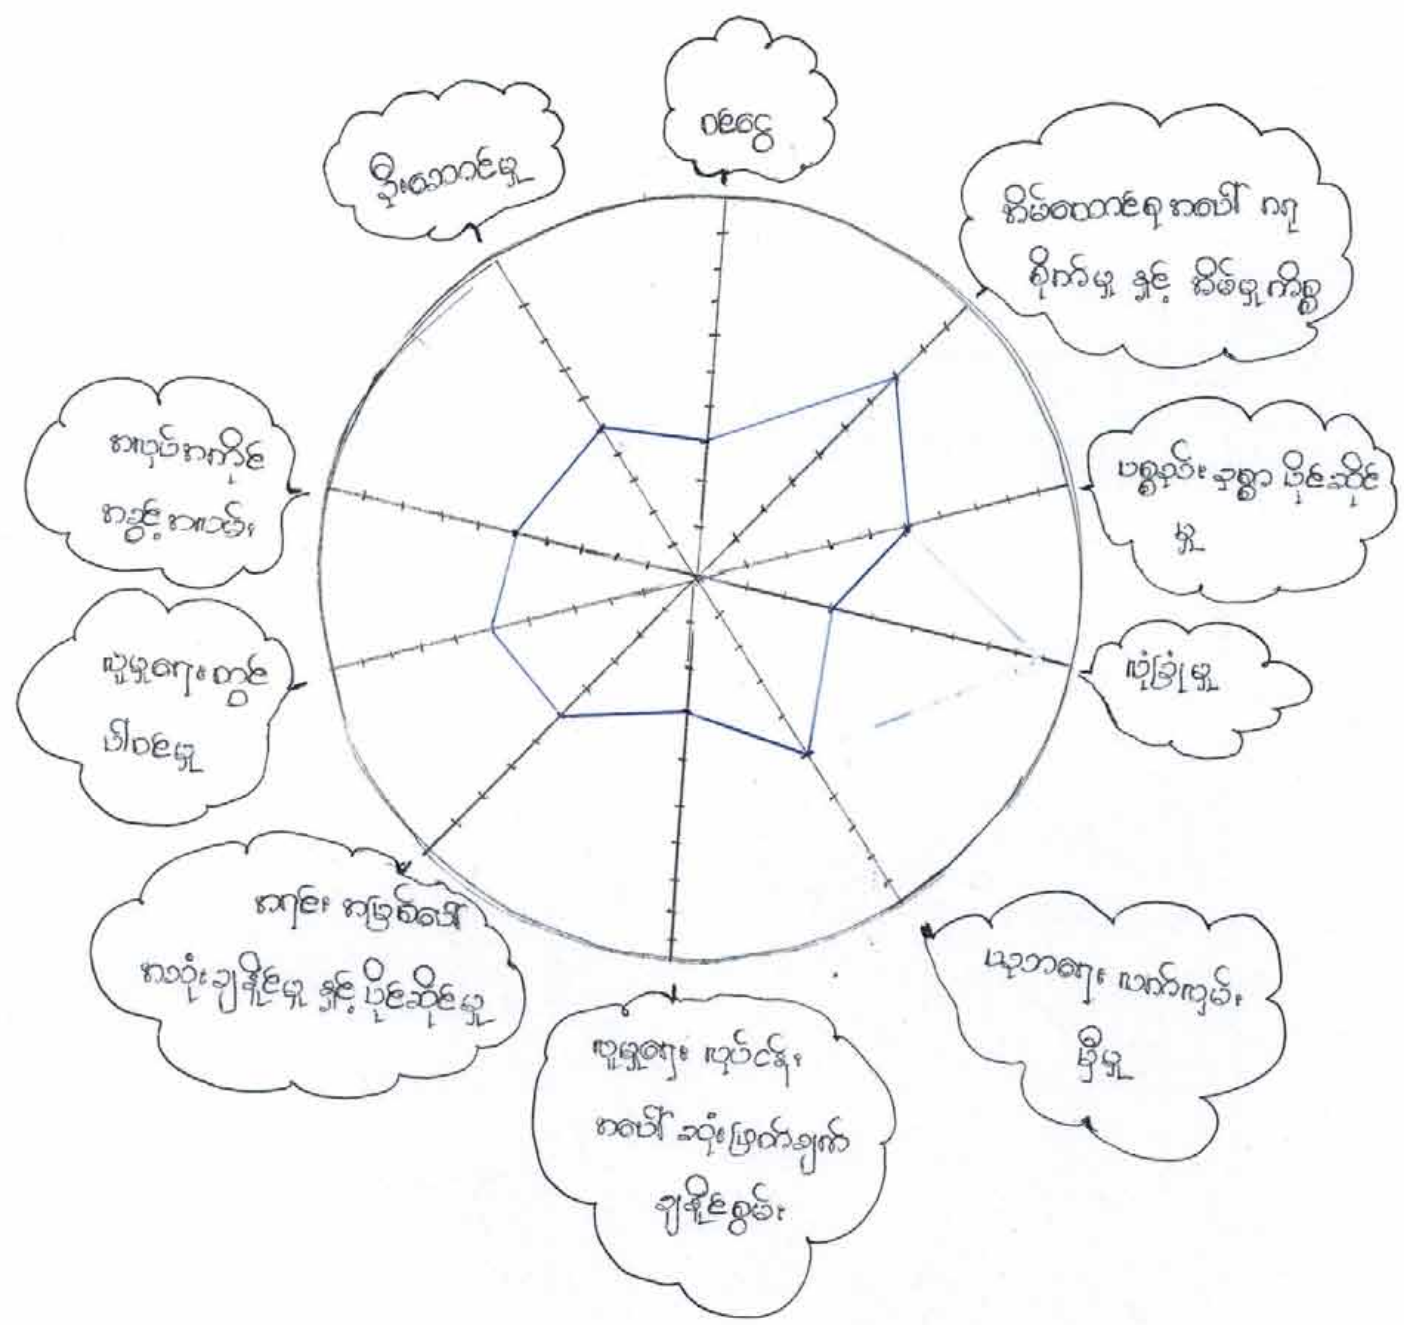 ဝင်ငွေ
အိမ်ထောင်စု အပေါ် ဂရု
စိုက်မှု နှင့် အိမ်မှုကိစ္စ
ပစ္စည်း ဥစ္စာ ပိုင်ဆိုင်
မှု
လုံခြုံမှု
ယုဘရေး လက်လှမ်း
မှီမှု
လူမှုရေး လုပ်ငန်း
အပေါ် ဆုံးဖြတ်ချက်
ချနိုင်စွမ်း
အရင်း အမြစ်ပေါ်
အသုံးချနိုင်မှု နှင့် ပိုင်ဆိုင်မှု
လူမှုရေးတွင်
ပါဝင်မှု
အလုပ်အကိုင်
အခွင့်အလမ်း
ဦးဆောင်မှု